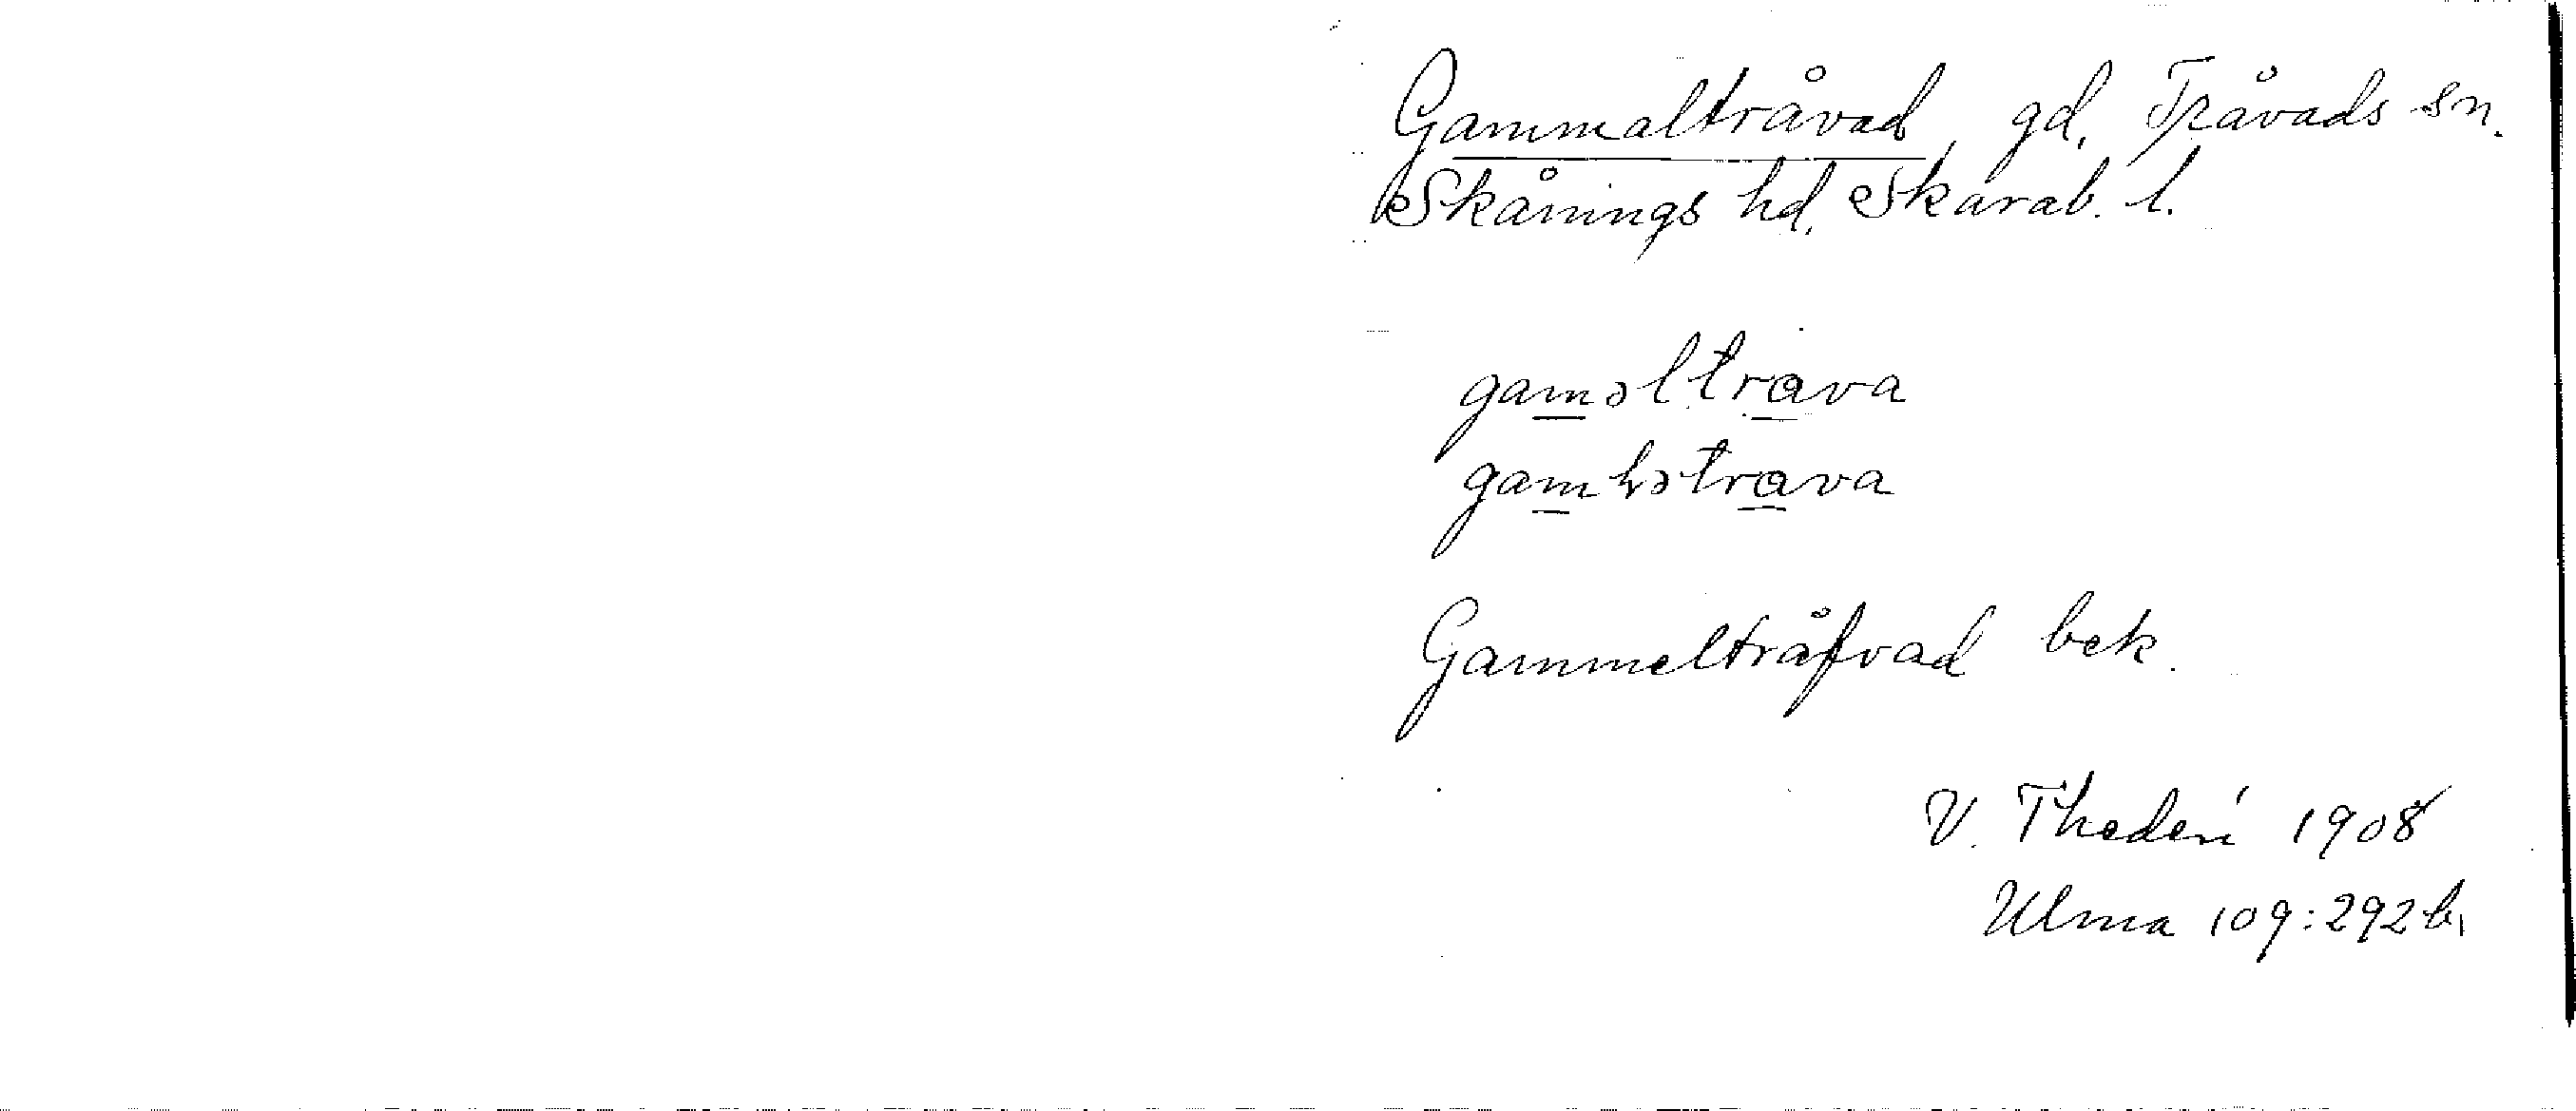 Gammaltråvad, gd, Tråvads sn.
Skånings hd, Skarab. l.
gaməltrava
gamḷətrava
Gammeltråfvad bek.
V. Thedén 1908
Ulma 109:292 b,